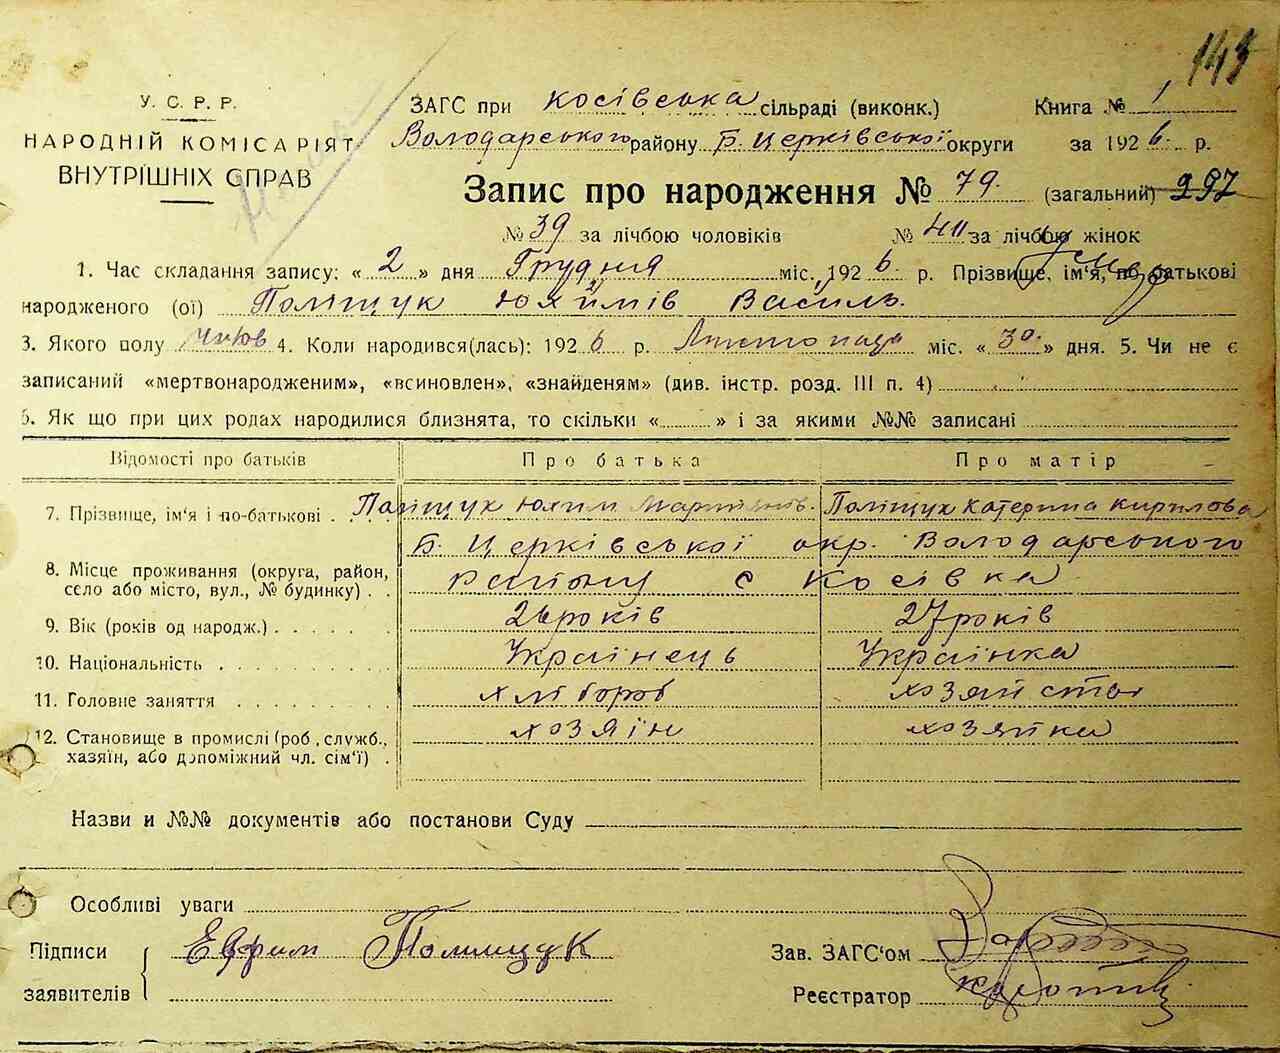 143
У. С. Р. Р.
НАРОДНІЙ КОМІСАРІЯТ
ВНУТРІШНІХ СПРАВ
ЗАГС при косівська сільраді (виконк.) Книга № 1
Володарського району Б. Церківської округи за 1926 р.
Запис про народження № 79. (загальний) 297
№ 39 за лічбою чоловіків № 40 за лічбою жінок
1. Час складання запису: « 2 » дня Грудня міс. 1926 р. Прізвище, ім'я, по батькові
народженого (ої) Поліщук Юхимів Василь.
3. Якого полу 4. Коли народився(лась): 1926 р. Листопада міс. « 30. » дня. 5. Чи не є
записаний «мертвонародженим», «всиновлен», «знайденям» (див. інстр. розд. III п. 4)
6. Як що при цих родах народилися близнята, то скільки « » і за якими №№ записані
Відомості про батьків Про батька Про матір
7. Прізвище, ім'я і по-батькові . Поліщук Юхим Мартинів. Поліщук Катерина Кирилова
Б. Церківської окр. Володарського
8. Місце проживання (округа, район, району с Косівка
село або місто, вул., № будинку) . .
9. Вік (років од народж.) . . . . . . 26 років 27 років
10. Національність . . . . . . . . . Українець Українка
11. Головне заняття . . . . . . . . хлібороб хозяйство
12. Становище в промислі (роб, служб., хозяїн хозяйка
хазяїн, або допоміжний чл. сім'ї) .
Назви и №№ документів або постанови Суду
Особливі уваги
Підписи Ефим Полищук Зав. ЗАГС'ом
заявителів Реєстратор